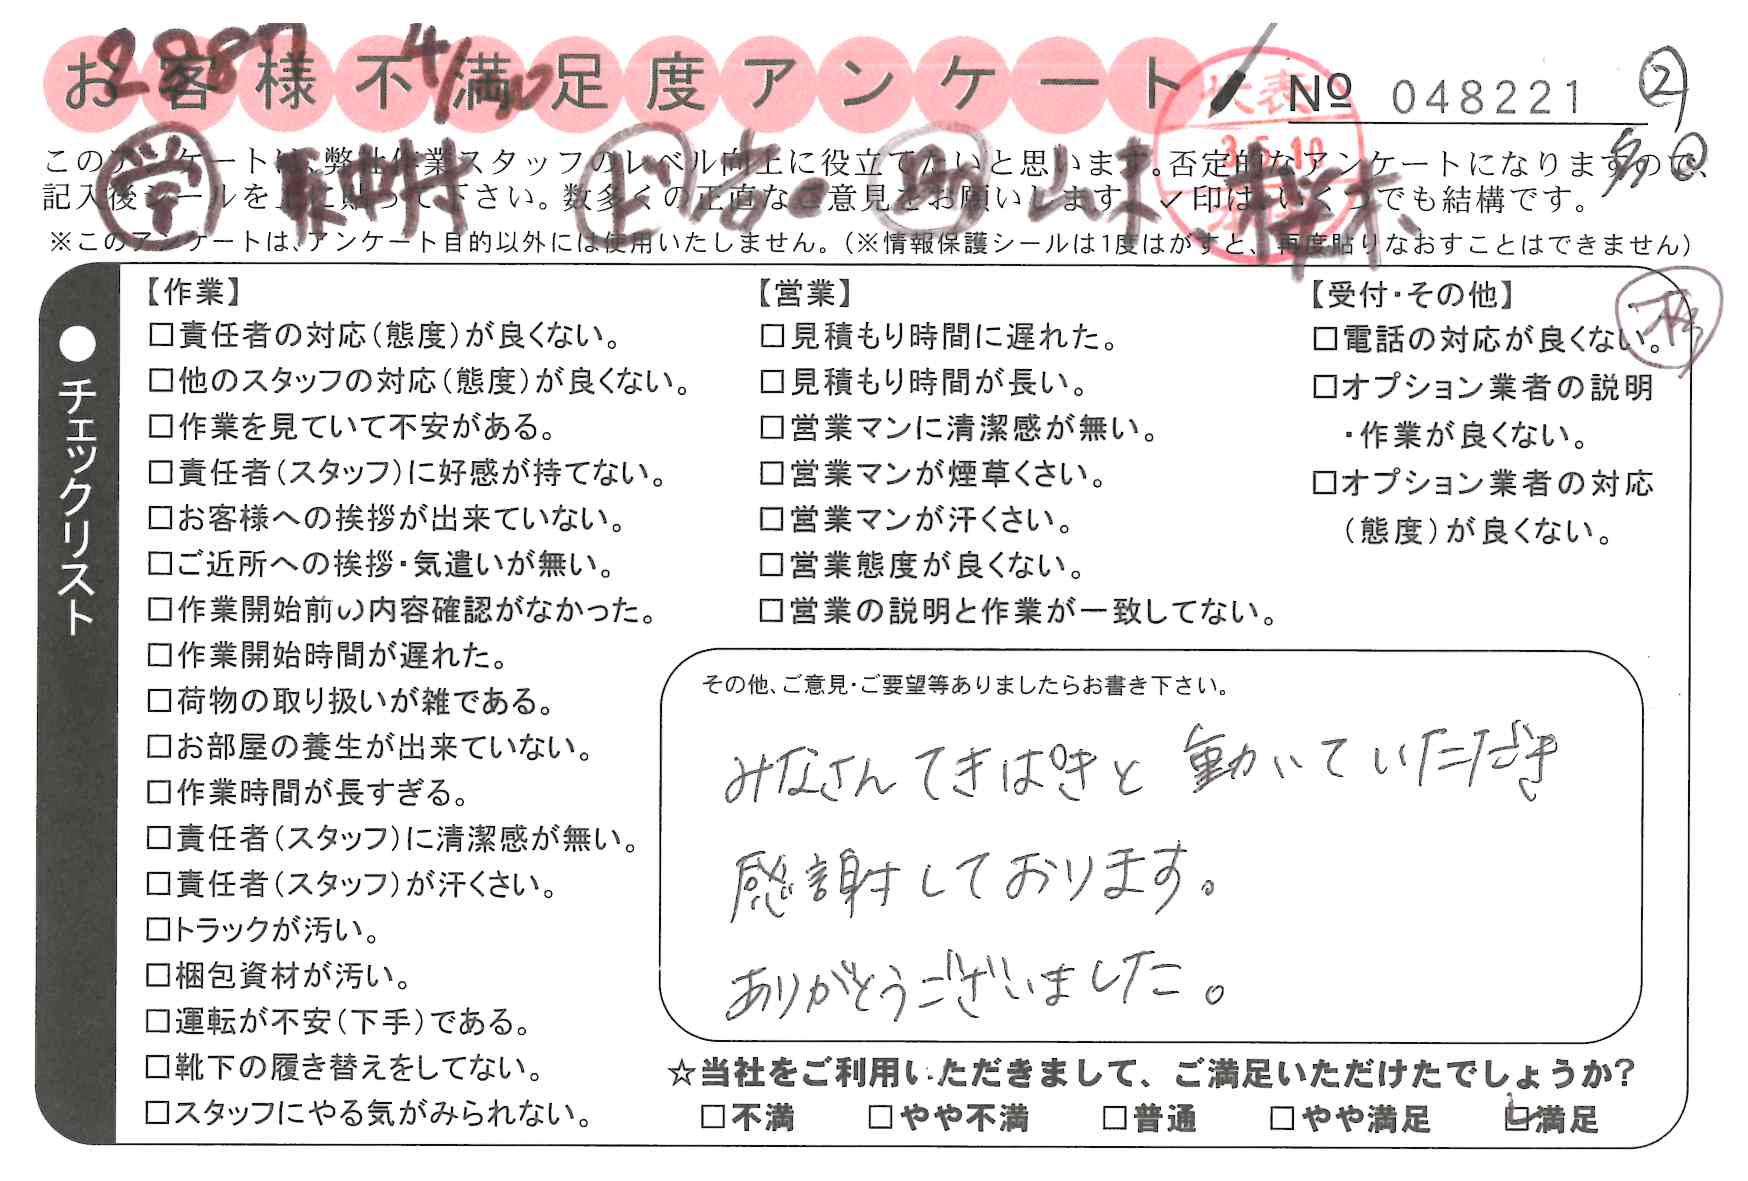 お客様不満足度アンケート
№ 048221 ②
このアンケートは、弊社作業スタッフのレベル向上に役立てたいと思います。否定的なアンケートになりますので、
記入後シールを上に貼って下さい。数多くの正直なご意見をお願いします。✓印は、いくつでも結構です。
※このアンケートは、アンケート目的以外には使用いたしません。（※情報保護シールは1度はがすと、再度貼りなおすことはできません）
●チェックリスト
【作業】
□責任者の対応（態度）が良くない。
□他のスタッフの対応（態度）が良くない。
□作業を見ていて不安がある。
□責任者（スタッフ）に好感が持てない。
□お客様への挨拶が出来ていない。
□ご近所への挨拶・気遣いが無い。
□作業開始前の内容確認がなかった。
□作業開始時間が遅れた。
□荷物の取り扱いが雑である。
□お部屋の養生が出来ていない。
□作業時間が長すぎる。
□責任者（スタッフ）に清潔感が無い。
□責任者（スタッフ）が汗くさい。
□トラックが汚い。
□梱包資材が汚い。
□運転が不安（下手）である。
□靴下の履き替えをしてない。
□スタッフにやる気がみられない。
【営業】
□見積もり時間に遅れた。
□見積もり時間が長い。
□営業マンに清潔感が無い。
□営業マンが煙草くさい。
□営業マンが汗くさい。
□営業態度が良くない。
□営業の説明と作業が一致してない。
【受付・その他】
□電話の対応が良くない。
□オプション業者の説明
・作業が良くない。
□オプション業者の対応
（態度）が良くない。
その他、ご意見・ご要望等ありましたらお書き下さい。
みなさんてきぱきと動いていただき
感謝しております。
ありがとうございました。
☆当社をご利用いただきまして、ご満足いただけたでしょうか?
□不満 □やや不満 □普通 □やや満足 ☑満足